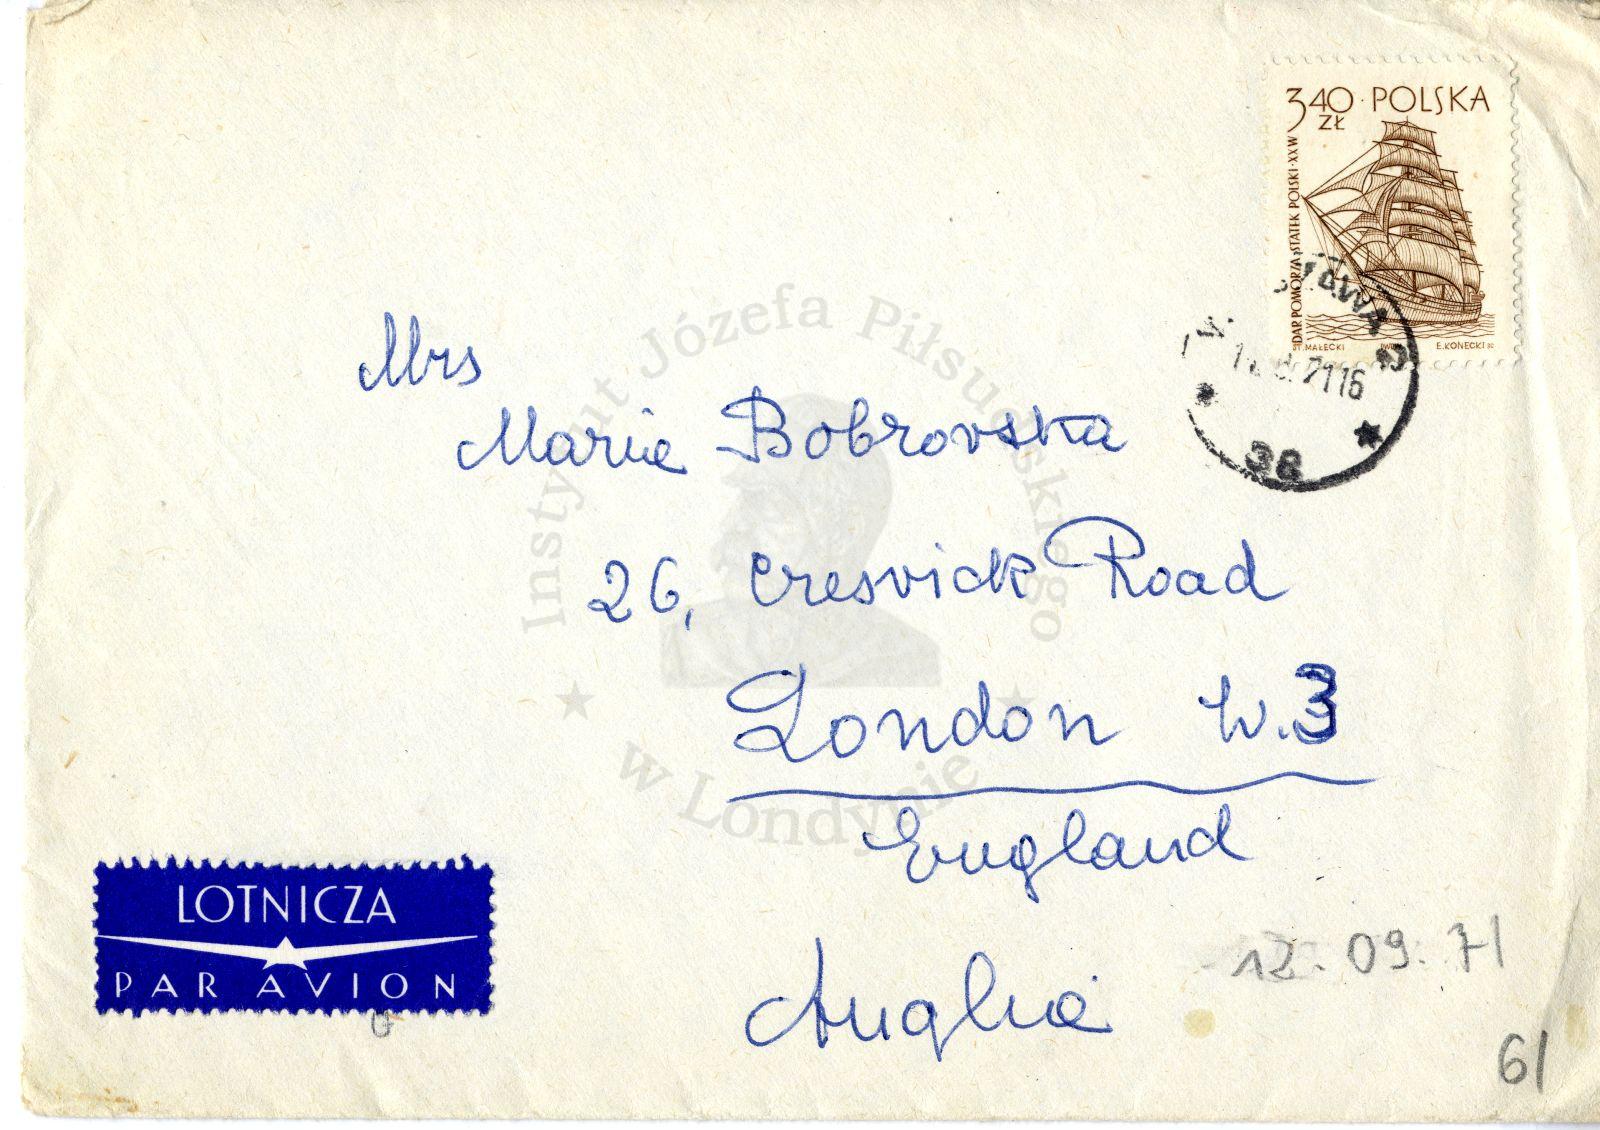 3,40 · POLSKA
ZŁ
DAR POMORZA STATEK POLSKI · XX W
ST. MAŁECKI E. KONECKI
16
38
Instytut Józefa Piłsudskiego
w Londynie
Mrs
Marie Bobrovska
26, Cresvick Road
London W.3
England
Anglia
LOTNICZA
PAR AVION
12. 09. 71
61